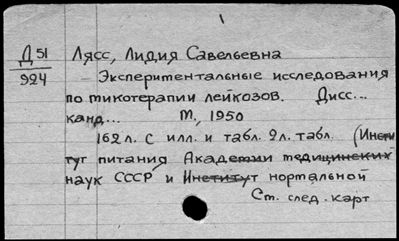 Д 51
924
Лясс, Лидия Савельевна
Экспериментальные исследования
по микотерапии лейкозов. Дисс...
канд... М., 1950
162л. с илл. и табл. 2л. табл. (Инсти
тут питания Академии медицинских
наук СССР и Институт нормальной
Ст. след. карт